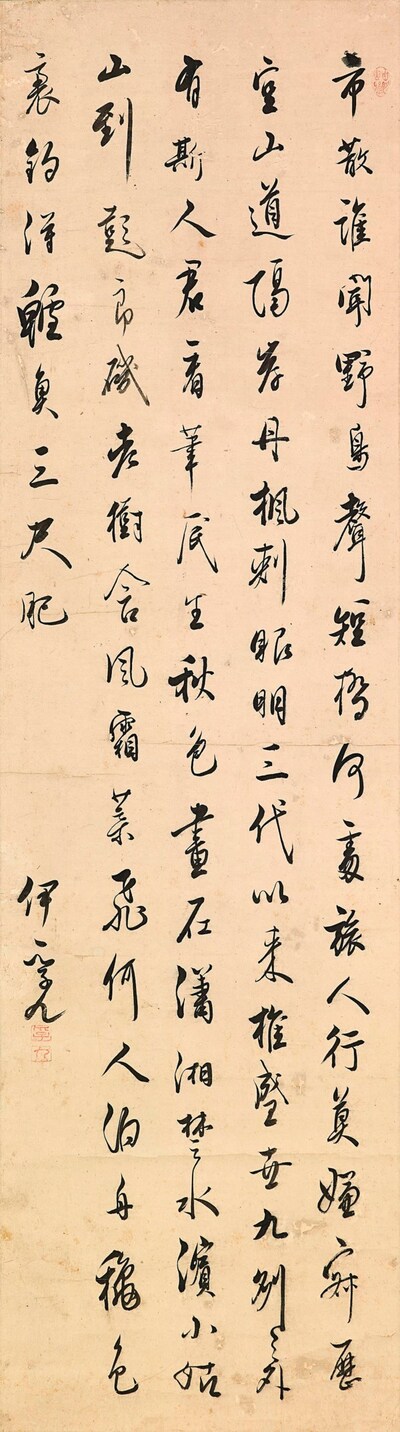 市散誰聞野鳥聲短橋何處旅人行莫嫌寂歷
空山道隔岸丹楓刺眼明三代以來推盛世九州之外
有斯人君看民生秋色畫在瀟湘楚水濱小姑
山到彭郎磯老樹含風霜葉飛何人泊舟穐色
裏釣得鱸魚三尺肥
伊孚九